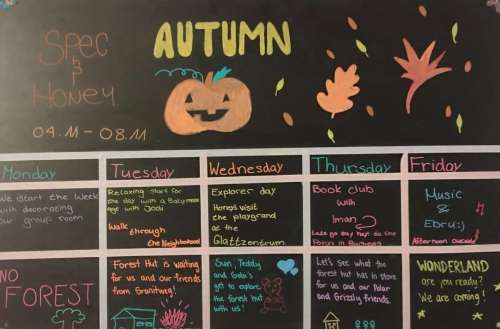 Spec
&
Honey
AUTUMN
04.11 - 08.11
Monday
Tuesday
Wednesday
Thursday
Friday
We start the Week
with decorating
our group room
Relaxing start for
the day with a
age with Jodi
Walk
through
the Neighborhood
Explorer day
Honeys visit
the playgrand
at the
Glattzentrum
Book club
with
Iman
Music
&
Ebru:)
Afternoon outside
NO
FOREST
Forest Hut is waiting
for us and our friends
from Granitweg!
Sun, Teddy
and
get to explore
the forest hut
with us!
Let's see what the
forest hut has in store
for us and our Polar
and Grizzly friends.
WONDERLAND
are you ready?
We are coming!